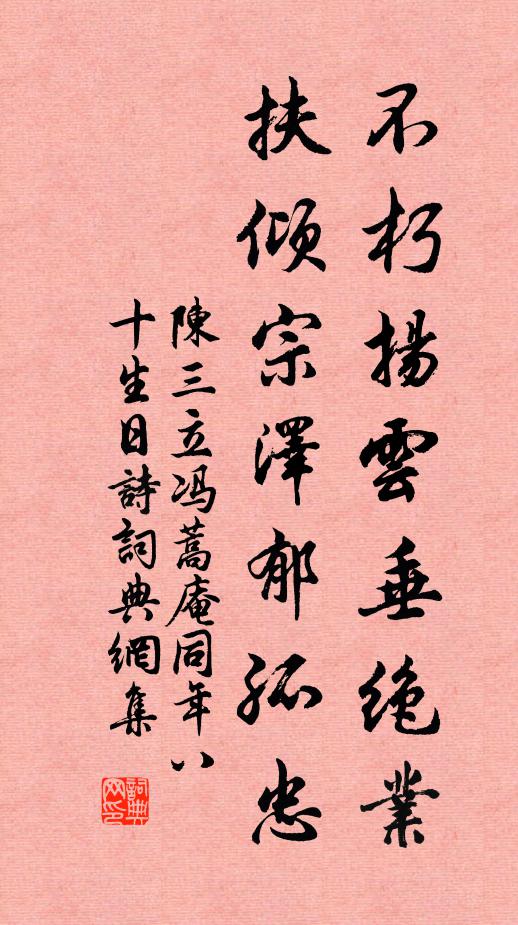 不朽揚雲垂絶業
扶傾宗澤郁孤忠
陳三立冯蒿庵同年八
十生日詩詞典網集
詞典
网印